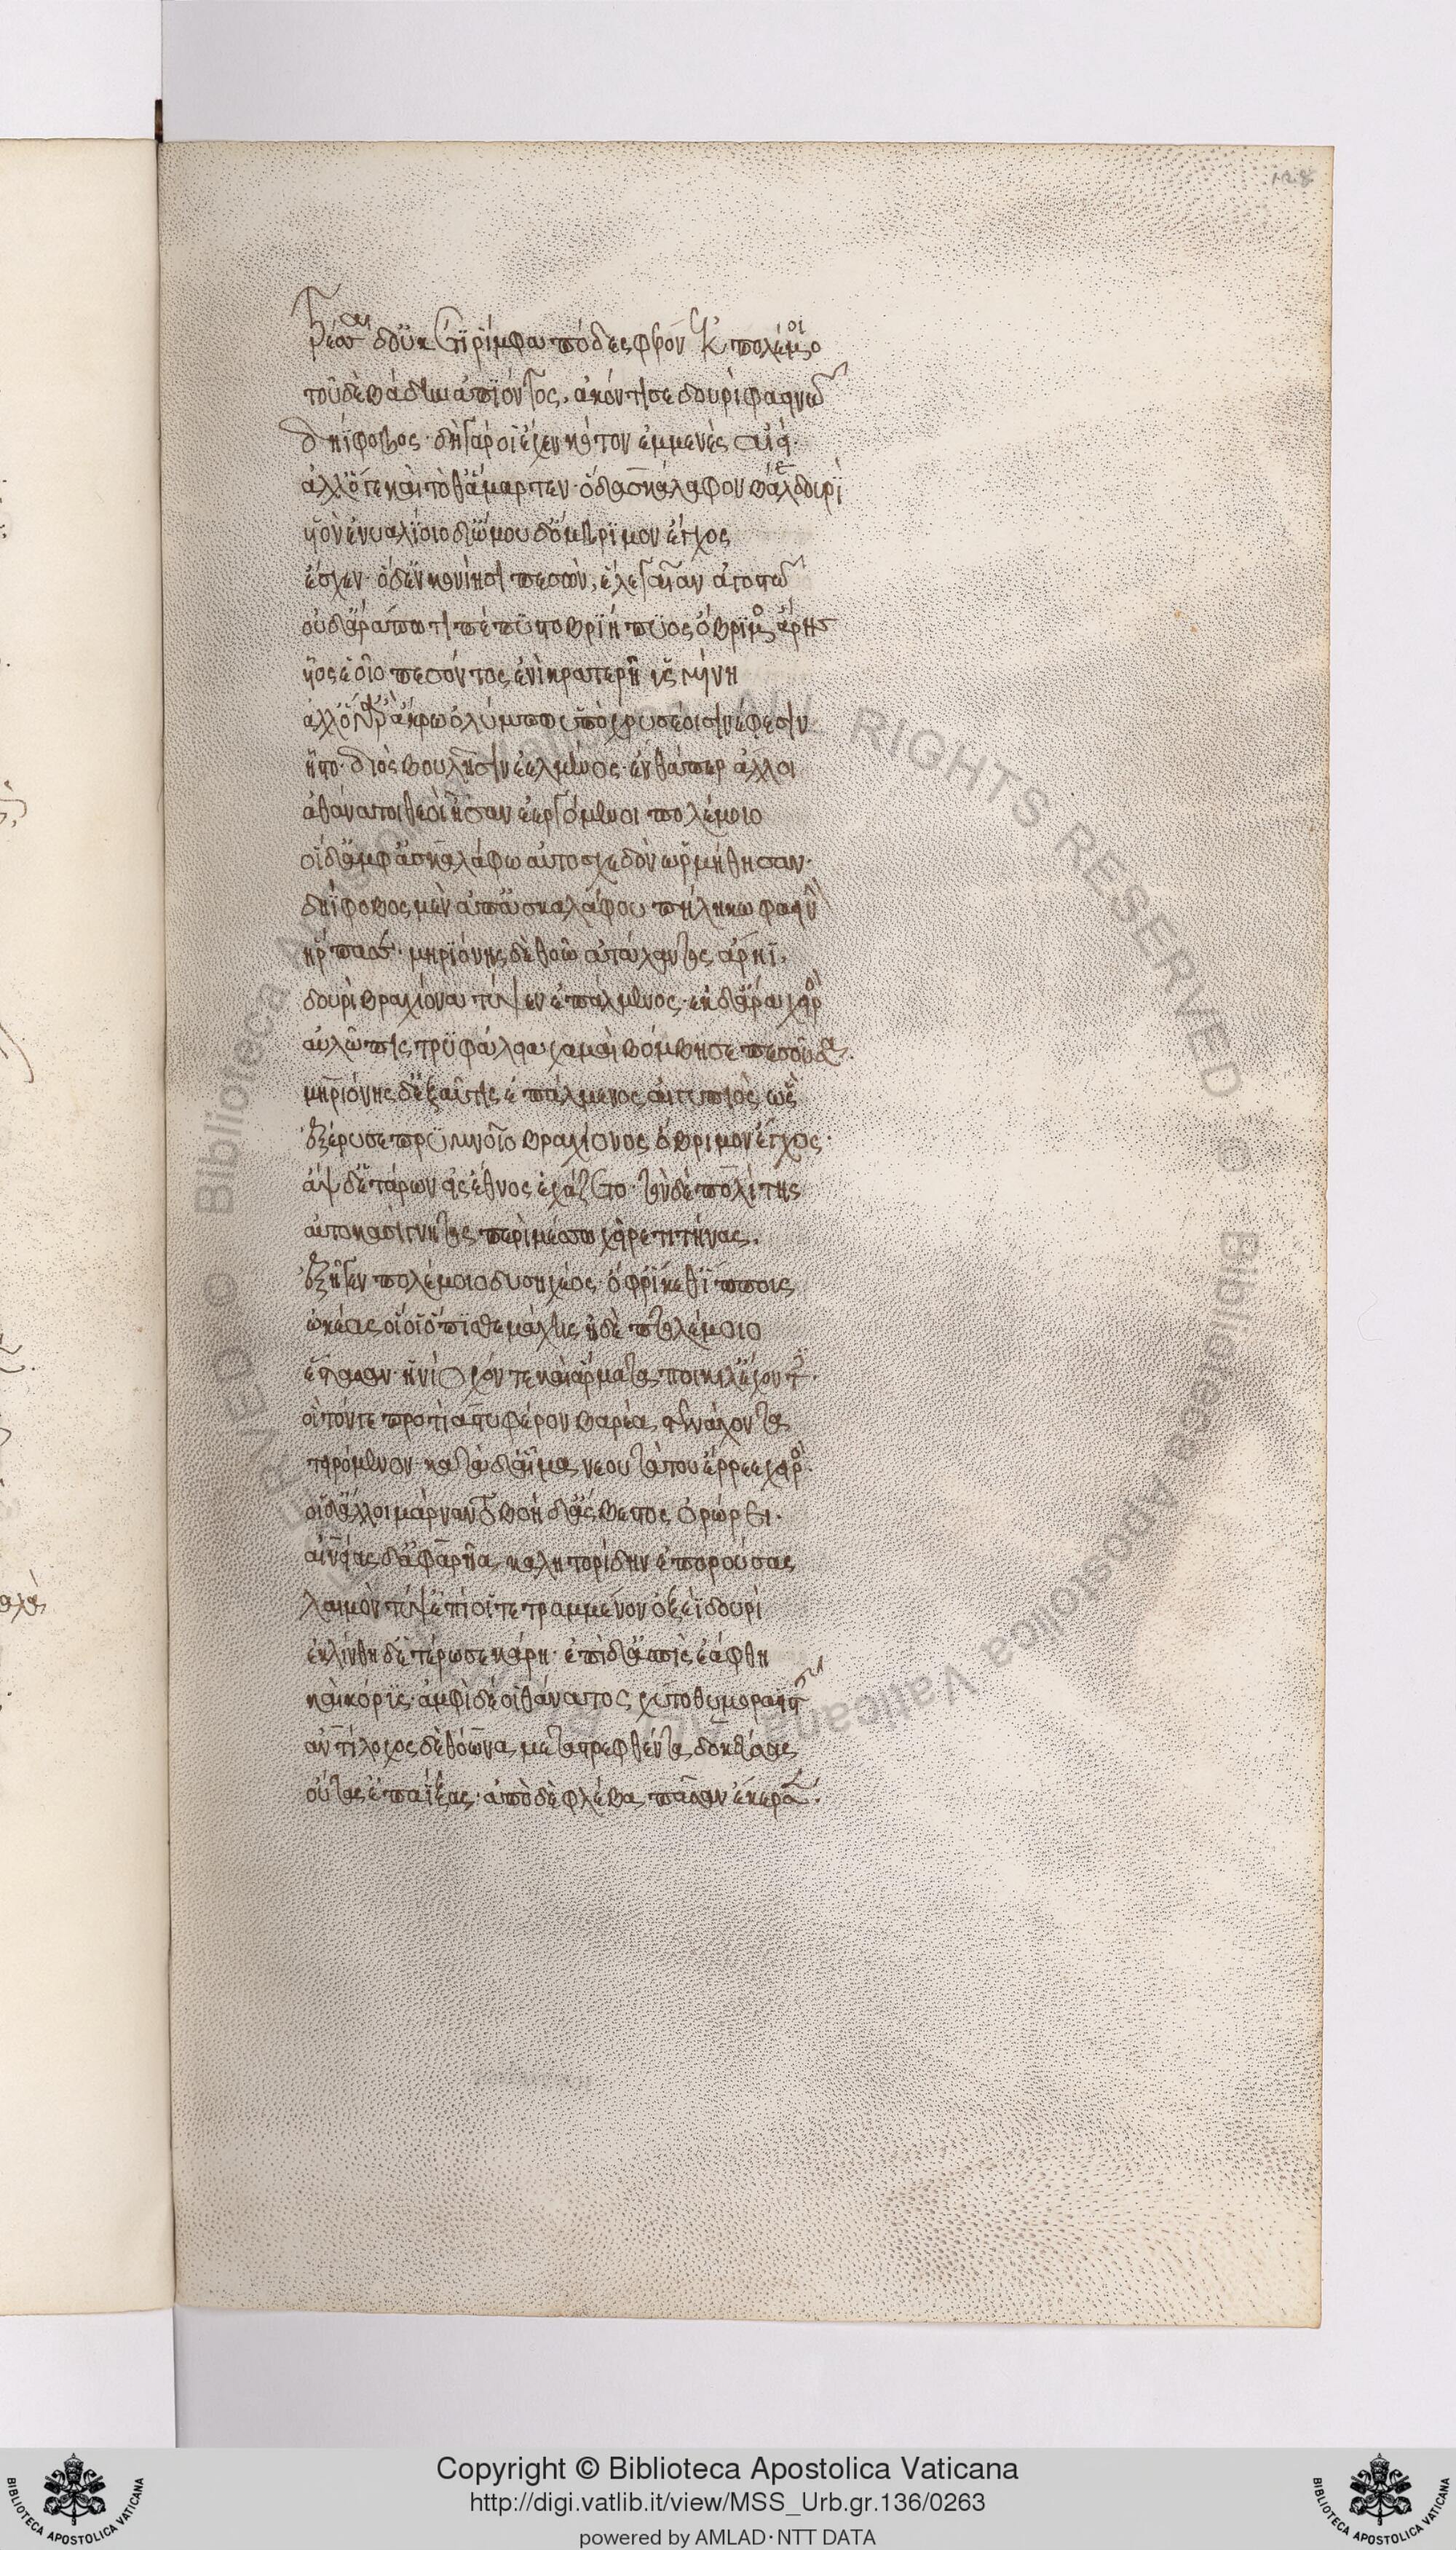 τρέσσαι δ' οὐκέτι ῥίμφα πόδες φέρον ἐκ πολέμοιο
τοῦ δὲ βάδην ἀπιόντος, ἀκόντισε δουρὶ φαεινῶ
δηίφοβος· δὴ γάρ οἱ ἔχεν κότον ἐμμενὲς αἰεί·
ἀλλ' ὅγε καὶ τόθ' ἅμαρτεν· ὁ δ' ἀσκάλαφον βάλε δουρὶ
υἱὸν ἐνυαλίοιο δι' ὤμου δ' ὄμβριμον ἔγχος
ἔσχεν· ὁ δ' ἐν κονίησι πεσὼν, ἕλε γαῖαν ἀγοστῶ
οὐδ' ἄρα πώ τι πέπυστο βριήπυος ὄβριμος ἄρης
υἷος ἑοῖο πεσόντος ἐνὶ κρατερῇ ὑσμίνη
ἀλλ' ὅγ' ἄρ' ἄκρω ὀλύμπω ὑπὸ χρυσέοισι νέφεσιν
ἧστο· διὸς βουλῇσιν ἐελμένος· ἔνθά περ ἄλλοι
ἀθάνατοι θεοὶ ἦσαν ἐεργόμενοι πολέμοιο
οἱ δ' ἀμφ' ἀσκαλάφω αὐτοσχεδὸν ὡρμήθησαν·
δηίφοβος μὲν ἀπ' ἀσκαλάφου πήληκα φαεινὴν
ἥρπασε· μηριόνης δὲ θοῶ ἀτάλαντος ἄρηϊ,
δουρὶ βραχίονα τύψεν ἐπάλμενος· ἐκ δ' ἄρα χειρὸς
αὐλῶπις τρυφάλεια χαμαὶ βόμβησε πεσοῦσα.
μηριόνης δ' ἐξαῦτις ἐπάλμενος αἰγυπιὸς ὣς
ἐξέρυσε πρυμνοῖο βραχίονος ὄβριμον ἔγχος·
ἂψ δ' ἑτάρων εἰς ἔθνος ἐχάζετο· τὸν δὲ πολίτης
αὐτοκασίγνητος περὶ μέσσω χεῖρε τιτήνας.
ἐξῆγεν πολέμοιο δυσηχέος· ὄφρ' ἵκεθ' ἵππους
ὠκέας οἵ οἱ ὄπισθε μάχης ἠδὲ πτολέμοιο
ἕστασαν· ἡνίοχόν τε καὶ ἅρματα ποικίλ' ἔχοντες·
οἳ τόν γε προτὶ ἄστυ φέρον βαρέα στενάχοντα
τειρόμενον· κατὰ δ' αἷμα νεουτάτου ἔρρεε χειρός·
οἱ δ' ἄλλοι μάρναντο βοὴ δ' ἄσβεστος ὀρώρει·
αἰνείας δ' ἀφαρῆα καλητορίδην ἐπορούσας
λαιμὸν τύψ' ἐπὶ οἷ τετραμμένον ὀξέϊ δουρὶ
ἐκλίνθη δ' ἑτέρωσε κάρη· ἐπὶ δ' ἀσπὶς ἑάφθη
καὶ κόρυς· ἀμφὶ δέ οἱ θάνατος χύτο θυμοραϊστής
ἀντίλοχος δὲ θόωνα μεταστρεφθέντα δοκεύσας
οὔτασ' ἐπαΐξας· ἀπὸ δὲ φλέβα πᾶσαν ἔκερσε·
Copyright © Biblioteca Apostolica Vaticana
http://digi.vatlib.it/view/MSS_Urb.gr.136/0263
powered by AMLAD·NTT DATA